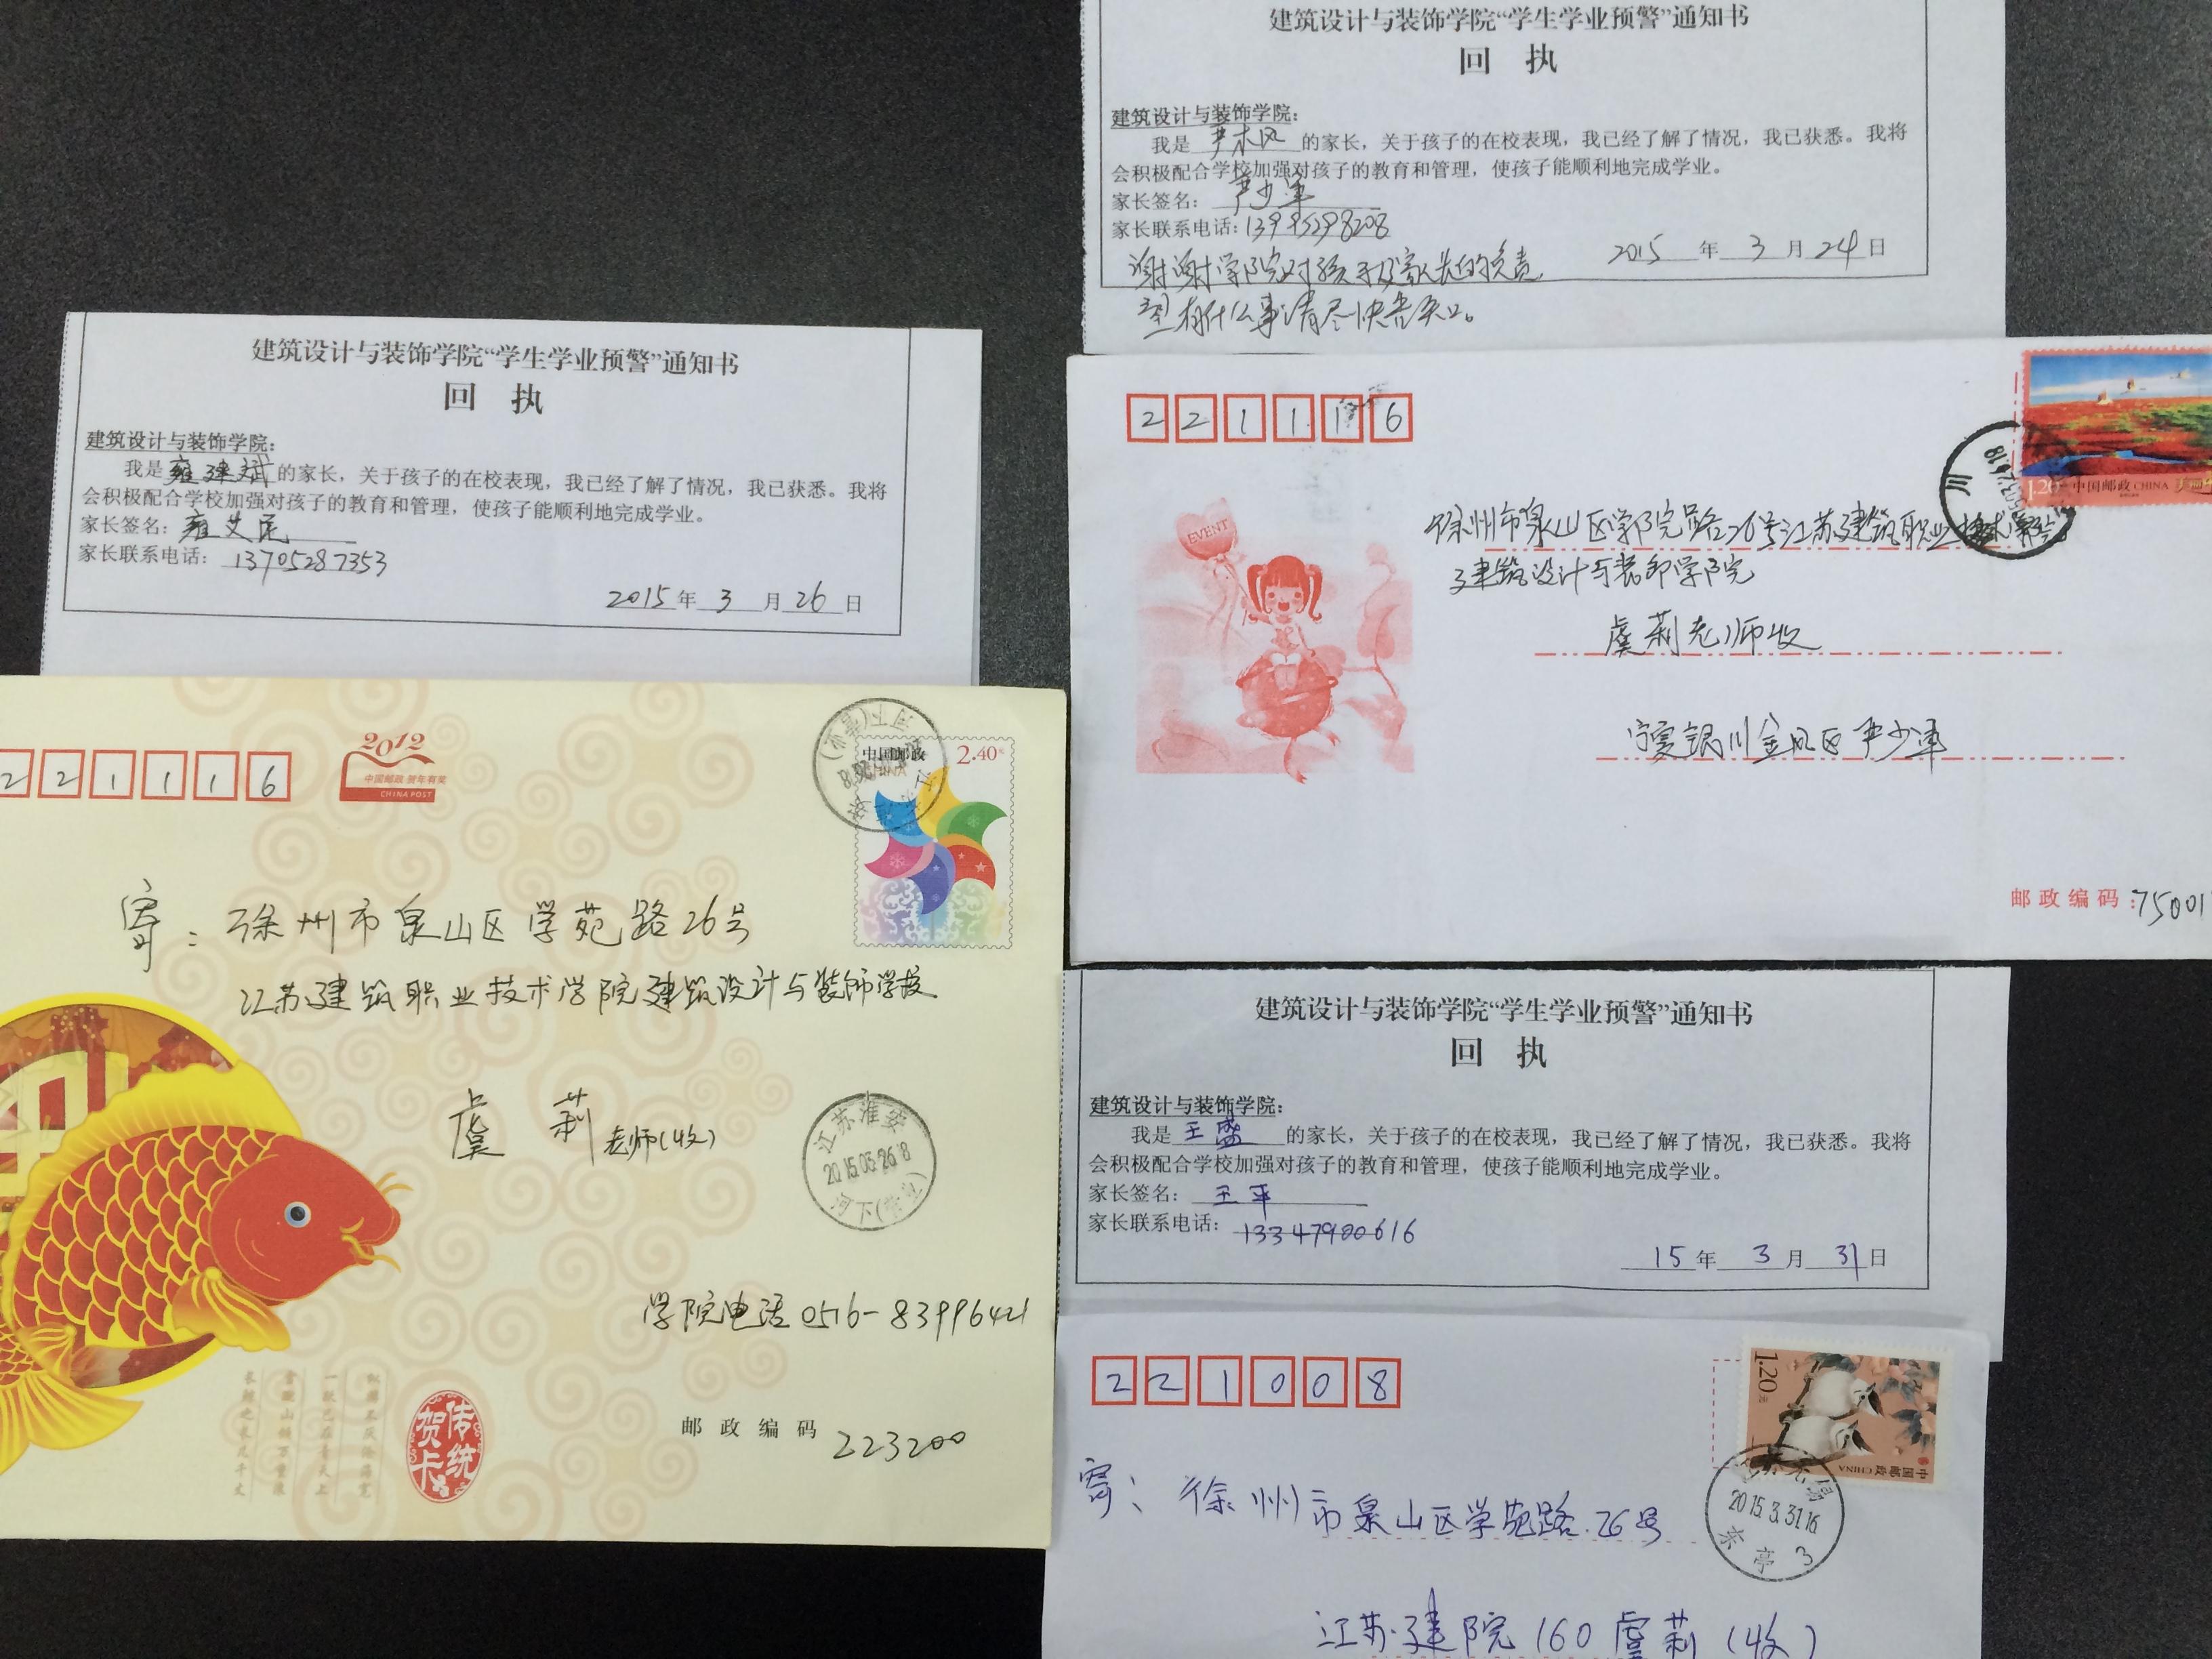 建筑设计与装饰学院“学生学业预警”通知书
回 执
建筑设计与装饰学院:
我是 尹木风 的家长，关于孩子的在校表现，我已经了解了情况，我已获悉。我将
会积极配合学校加强对孩子的教育和管理，使孩子能顺利地完成学业。
家长签名: 尹少军
家长联系电话: 13995298208
2015 年 3 月 24 日
谢谢学院对孩子及家长的负责
望有什么事请尽快告知。
建筑设计与装饰学院“学生学业预警”通知书
回 执
建筑设计与装饰学院:
我是 雍建斌 的家长，关于孩子的在校表现，我已经了解了情况，我已获悉。我将
会积极配合学校加强对孩子的教育和管理，使孩子能顺利地完成学业。
家长签名: 雍艾民
家长联系电话: 13705287353
2015 年 3 月 26 日
221116
1.20 中国邮政 CHINA
川
EVENT
徐州市泉山区学院路26号江苏建筑职业技术学院
建筑设计与装饰学院
虞莉老师收
宁夏银川金凤区尹少军
邮政编码: 75001
221116
2012
中国邮政 贺年有奖
CHINA POST
中国邮政
CHINA
2.40元
寄: 徐州市泉山区学苑路26号
江苏建筑职业技术学院建筑设计与装饰学校
虞莉 老师(收)
江苏淮安
2015.03.26 8
河下
学院电话 0516-83996421
传统贺卡
邮政编码 223200
建筑设计与装饰学院“学生学业预警”通知书
回 执
建筑设计与装饰学院:
我是 王盛 的家长，关于孩子的在校表现，我已经了解了情况，我已获悉。我将
会积极配合学校加强对孩子的教育和管理，使孩子能顺利地完成学业。
家长签名: 王平
家长联系电话: 13347900616
15 年 3 月 31 日
221008
1.20元
中国邮政 CHINA
2015.3.31.16
东亭 3
寄: 徐州市泉山区学苑路.26号
江苏建院160虞莉(收)